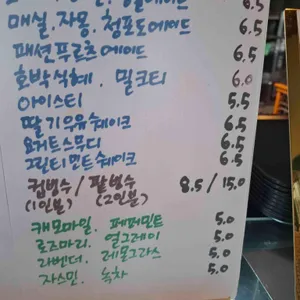 에이드 6.5
매실.자몽.청포도에이드 6.5
패션푸르츠에이드 6.5
호박식혜. 밀크티 6.0
아이스티 5.5
딸기우유쉐이크 6.5
요거트스무디 6.5
그린티민트쉐이크 6.5
컵빙수/팥빙수 8.5/15.0
(1인분) (2인분)
캐모마일. 페퍼민트 5.0
로즈마리. 얼그레이 5.0
라벤더. 레몬그라스 5.0
자스민. 녹차 5.0